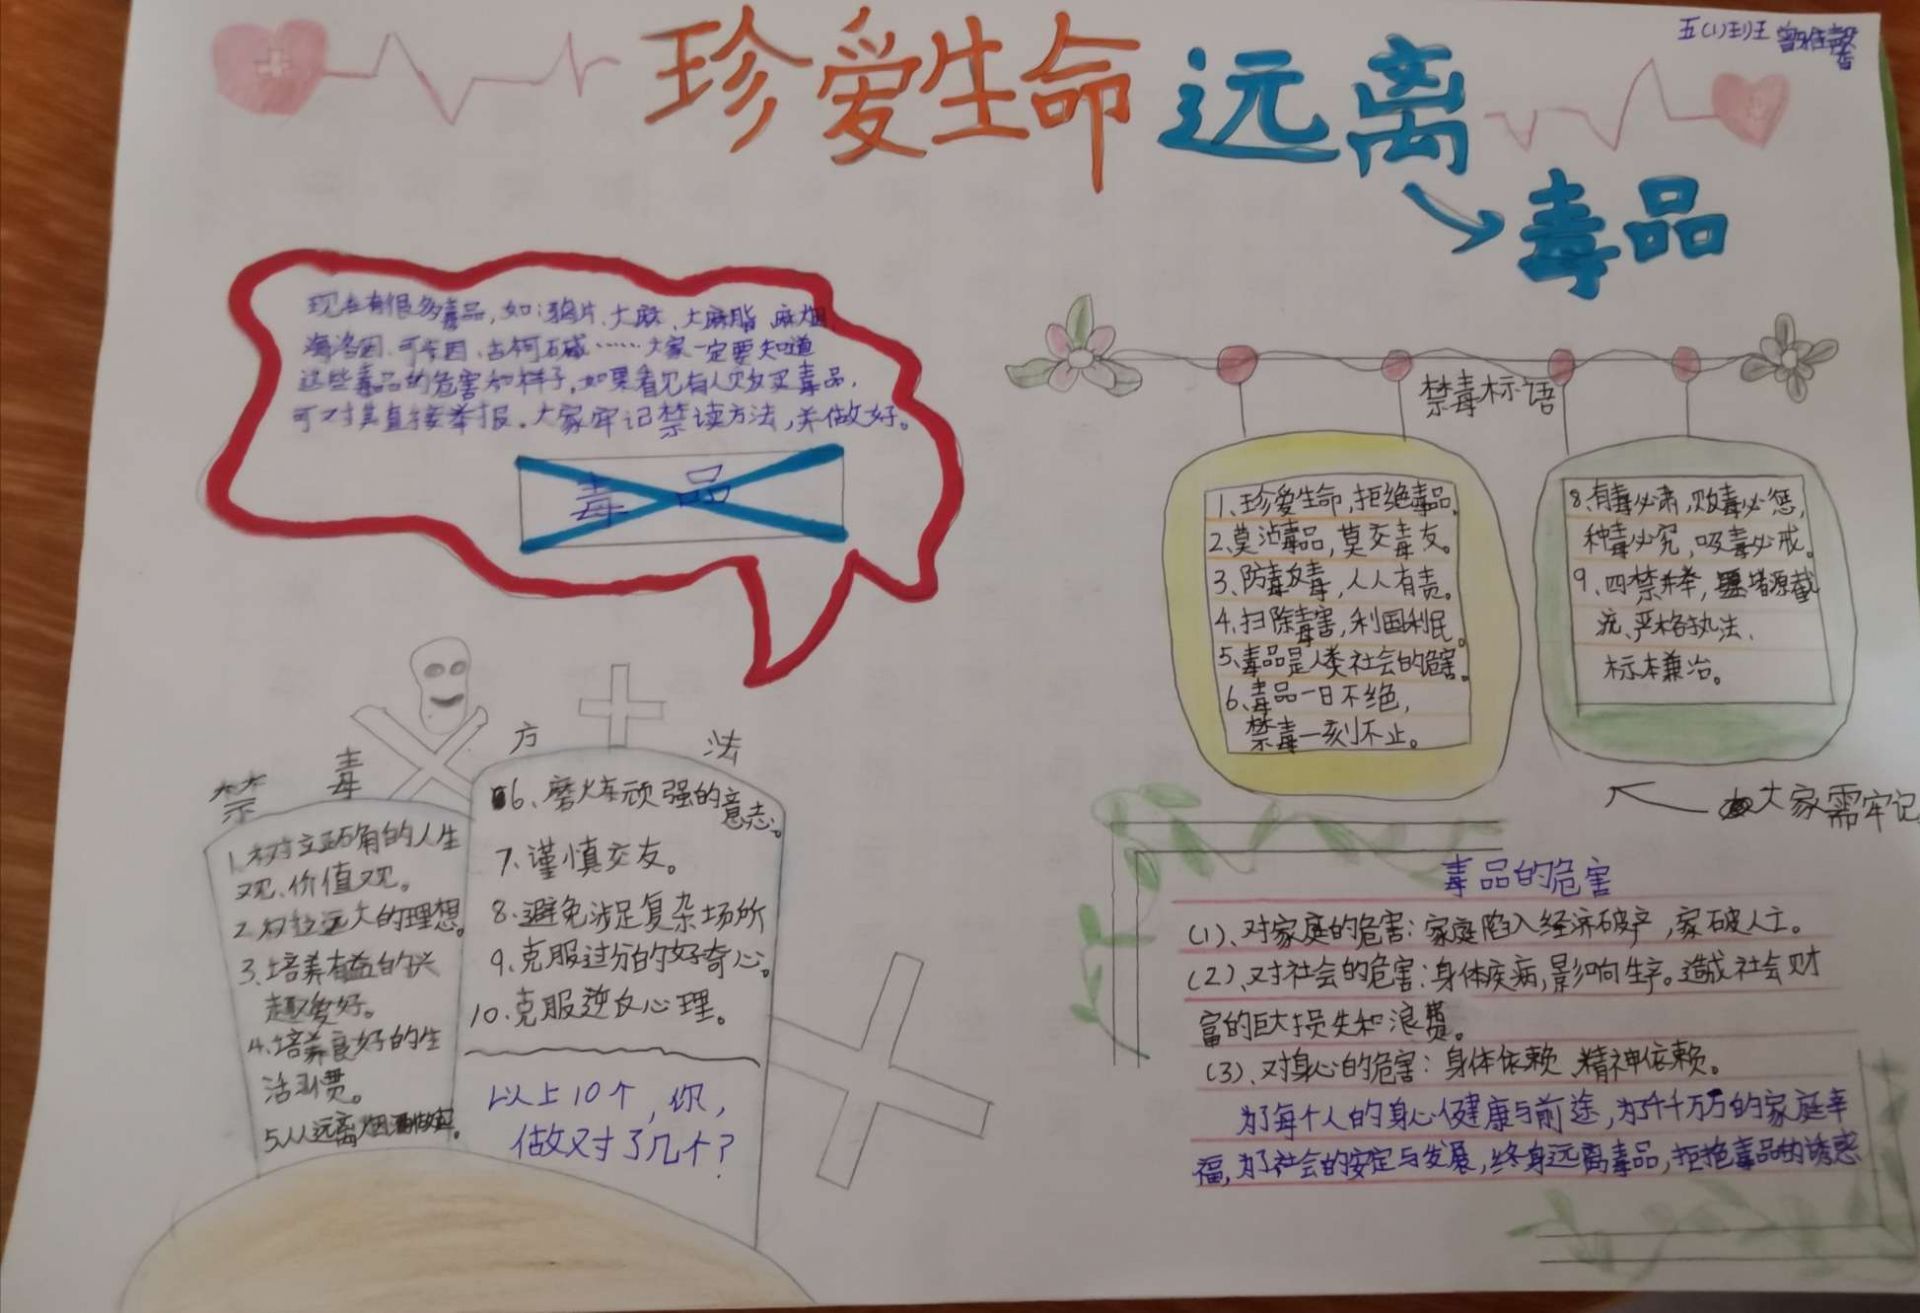 五(1)班
珍爱生命远离
毒品
现在有很多毒品,如:鸦片、大麻、大麻脂 麻烟
海洛因、可卡因、古柯碱……大家一定要知道
这些毒品的危害和样子,如果看见有人贩买毒品,
可对其直接举报。大家牢记禁读方法,并做好。
毒品
禁毒标语
1、珍爱生命,拒绝毒品。
2、莫沾毒品,莫交毒友。
3、防毒反毒,人人有责。
4、扫除毒害,利国利民。
5、毒品是人类社会的危害。
6、毒品一日不绝,
禁毒一刻不止。
8、有毒必肃,贩毒必惩,
种毒必究,吸毒必戒。
9、四禁并举,堵源截
流、严格执法、
标本兼治。
大家需牢记
禁毒方法
1、树立正确的人生
观、价值观。
2、树立远大的理想。
3、培养有益的兴
趣爱好。
4、培养良好的生
活习惯。
5、从远离烟酒做起。
6、磨炼顽强的意志。
7、谨慎交友。
8、避免涉足复杂场所
9、克服过分的好奇心。
10、克服逆反心理。
以上10个,你,
做对了几个?
毒品的危害
(1)、对家庭的危害:家庭陷入经济破产,家破人亡。
(2)、对社会的危害:身体疾病,影响生产。造成社会财
富的巨大损失和浪费。
(3)、对身心的危害:身体依赖、精神依赖。
为了每个人的身心健康与前途,为了千千万万的家庭幸
福,为了社会的安定与发展,终身远离毒品,拒绝毒品的诱惑